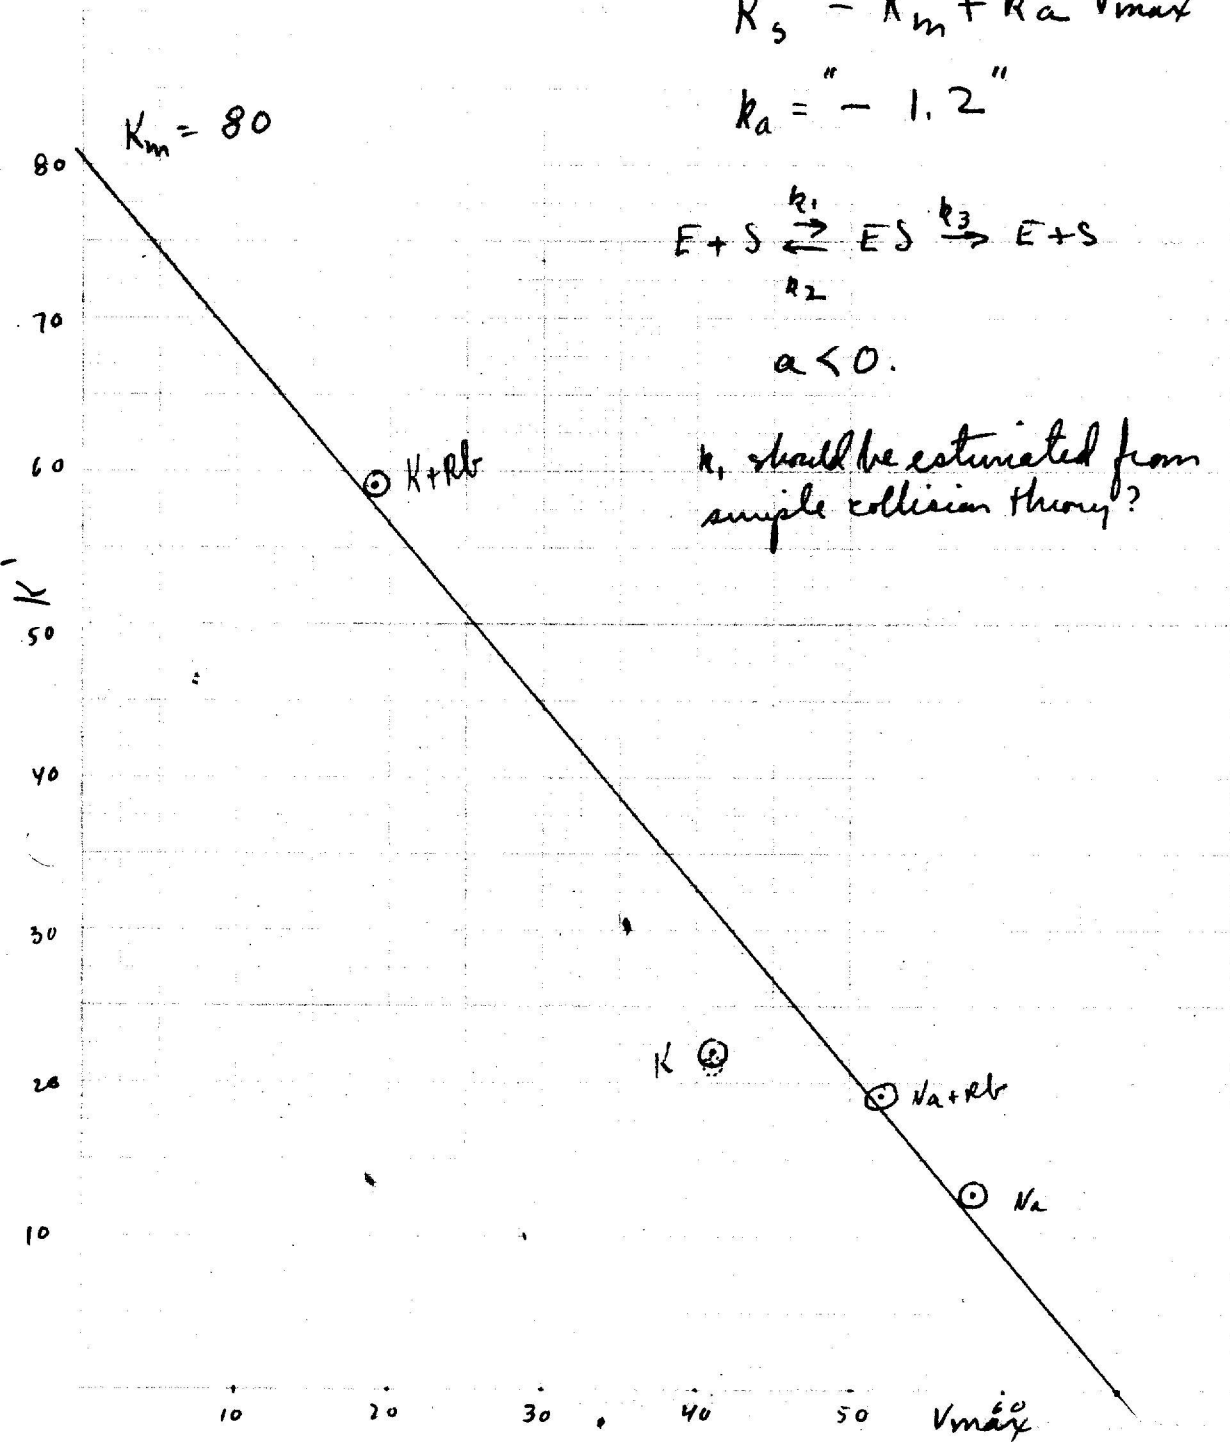 Ks = Km + ka Vmax
ka = "- 1.2"
Km = 80
E + S k1 ⇌ k2 ES k3 → E + S
a < 0.
k1 should be estimated from
simple collision theory?
80
70
60
50
40
30
20
10
K'
K+Rb
K
Na+Rb
Na
10 20 30 40 50 60
Vmax